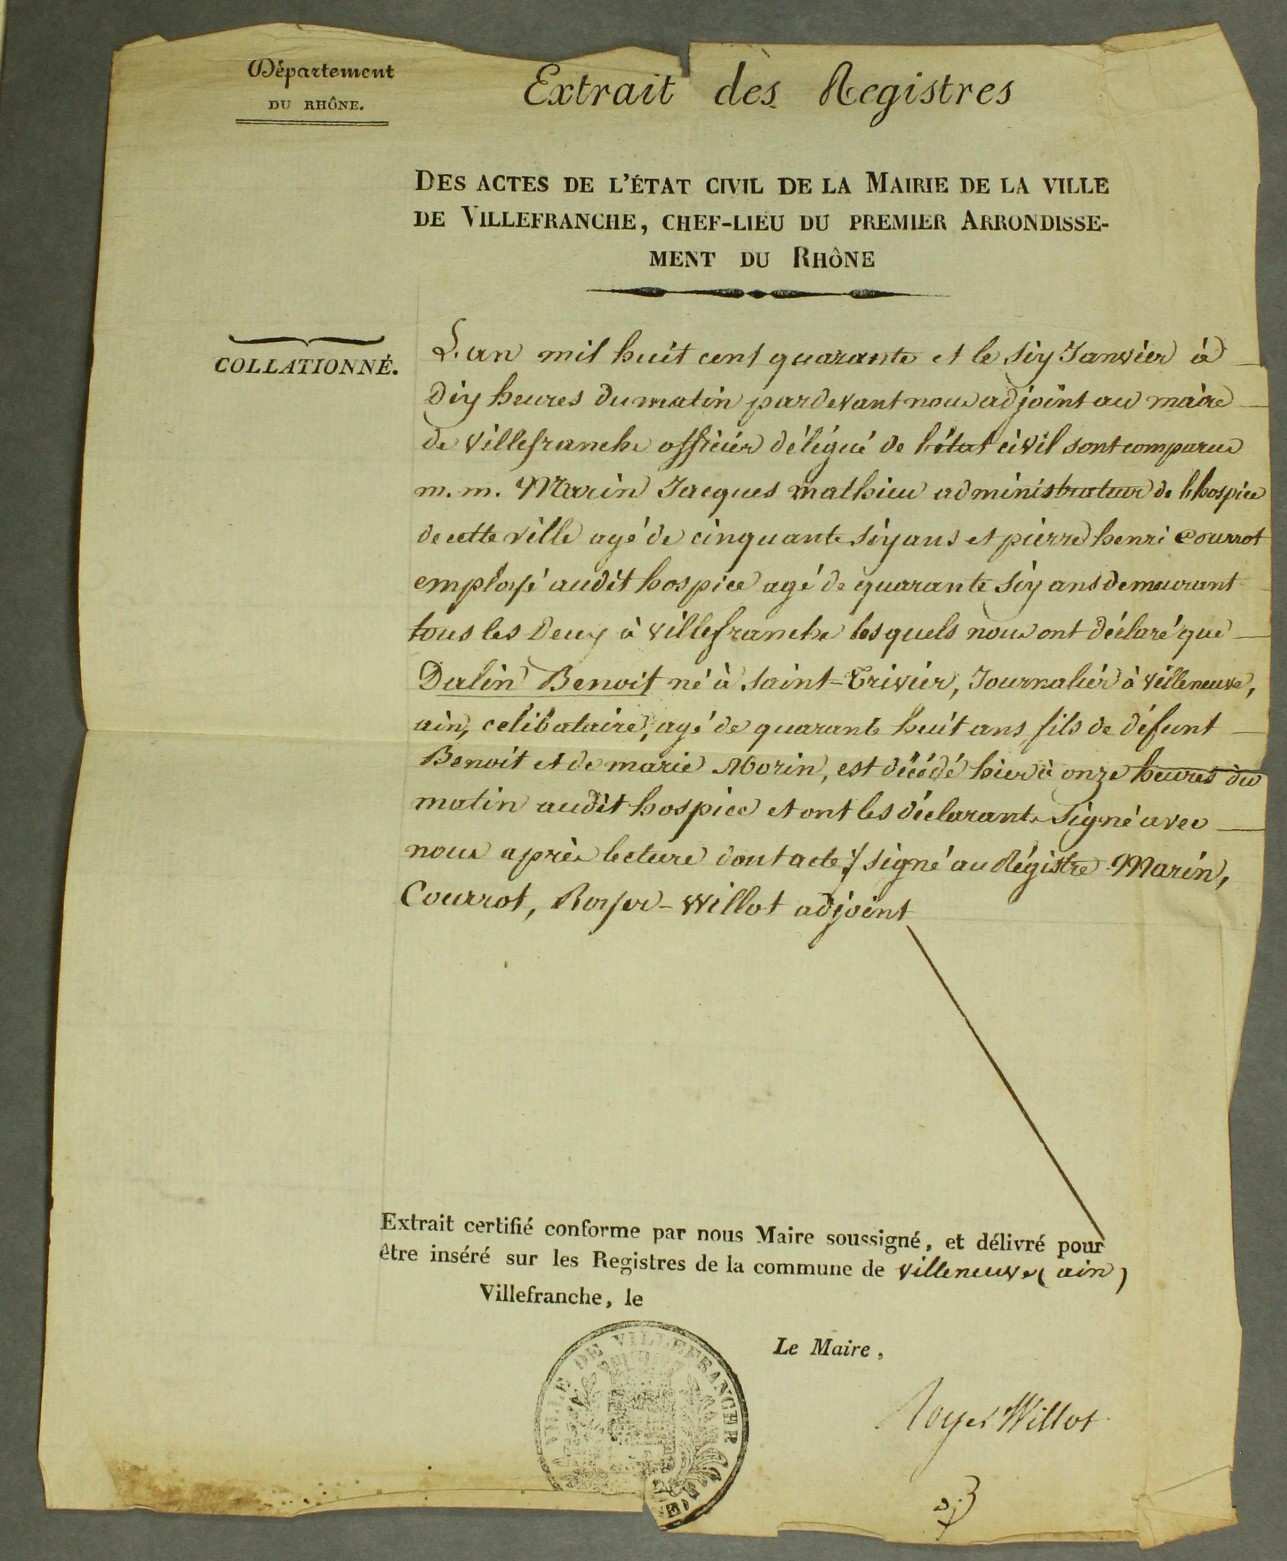 Département
DU RHÔNE.
Extrait des Registres
DES ACTES DE L'ÉTAT CIVIL DE LA MAIRIE DE LA VILLE
DE VILLEFRANCHE, CHEF-LIEU DU PREMIER ARRONDISSE-
MENT DU RHÔNE
COLLATIONNÉ.
L'an mil huit cent quarante et le six Janvier à
Dix heures du matin pardevant nous adjoint au maire
de Villefranche officier délégué de l'état civil sont comparus
m. m. Marin Jacques mathieu administrateur de l'hospice
de cette ville agé de cinquante six ans et pierre henri Courrot
employé audit hospice agé de quarante six ans demeurant
tous les Deux à Villefranche lesquels nous ont déclaré que
Dalin Benoit né à Saint-Trivier, Journalier à Villeneuve,
ain, celibataire, agé de quarante huit ans fils de défunt
Benoit et de marie Morin, est décédé hier à onze heures du
matin audit hospice et ont les déclarants signé avec
nous après lecture dont acte / signé au Régistre Marin,
Courrot, Royer-Willot adjoint
Extrait certifié conforme par nous Maire soussigné, et délivré pour
être inséré sur les Registres de la commune de Villeneuve (ain)
Villefranche, le
Le Maire,
Royer Willot
VILLE DE VILLEFRANCHE